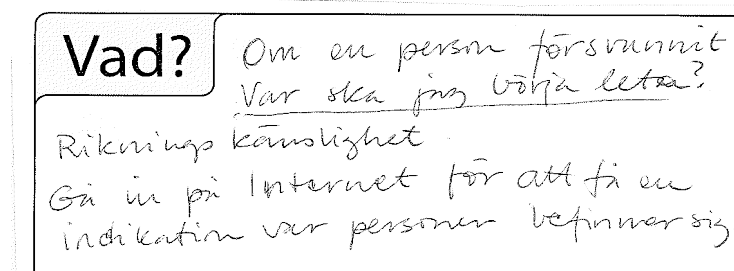 Vad?
Om en person försvunnit
Var ska jag börja leta?
Riknings känslighet
Gå in på Internet för att få en
indikation var personen befinner sig